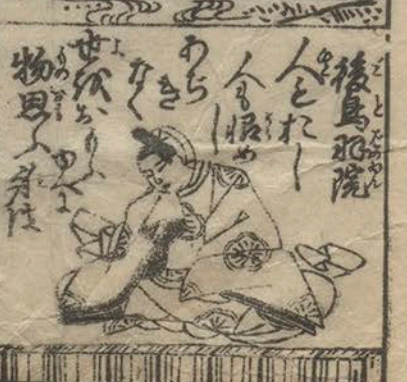 後鳥羽院
人もおし
人も恨め
し
あぢき
なく
世をおもふゆへに
物思ふ身は